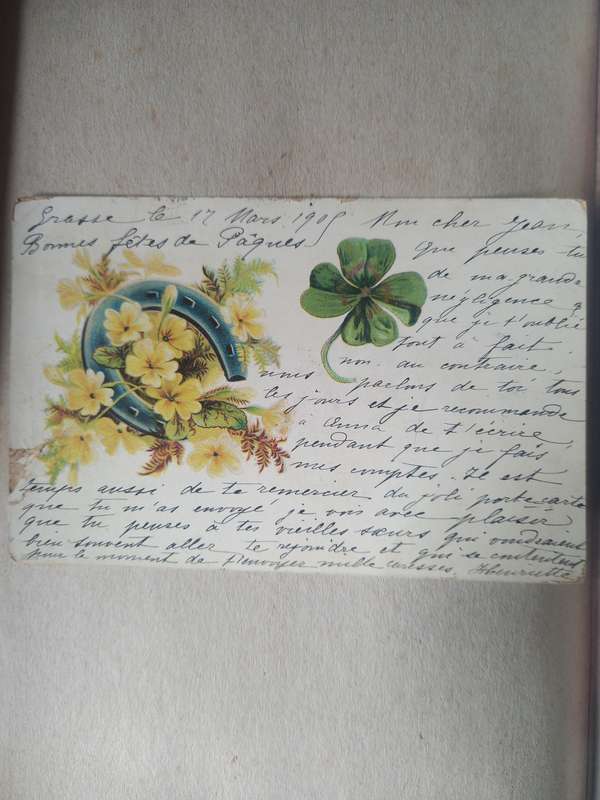 Grasse le 17 Mars 1905 Mon cher Jean,
Bonnes fêtes de Pâques
Que penses tu
de ma grande
négligence
que je t'oublie
tout à fait
non. au contraire,
nous parlons de toi tous
les jours et je recommande
à Anna de t'écrire,
pendant que je fais
mes comptes. Il est
temps aussi de te remercier du joli porte-carte
que tu m'as envoyé, je vois avec plaisir
que tu penses à tes vieilles sœurs qui voudraient
bien souvent aller te rejoindre et qui se contentent
pour le moment de t'envoyer mille caresses. Henriette